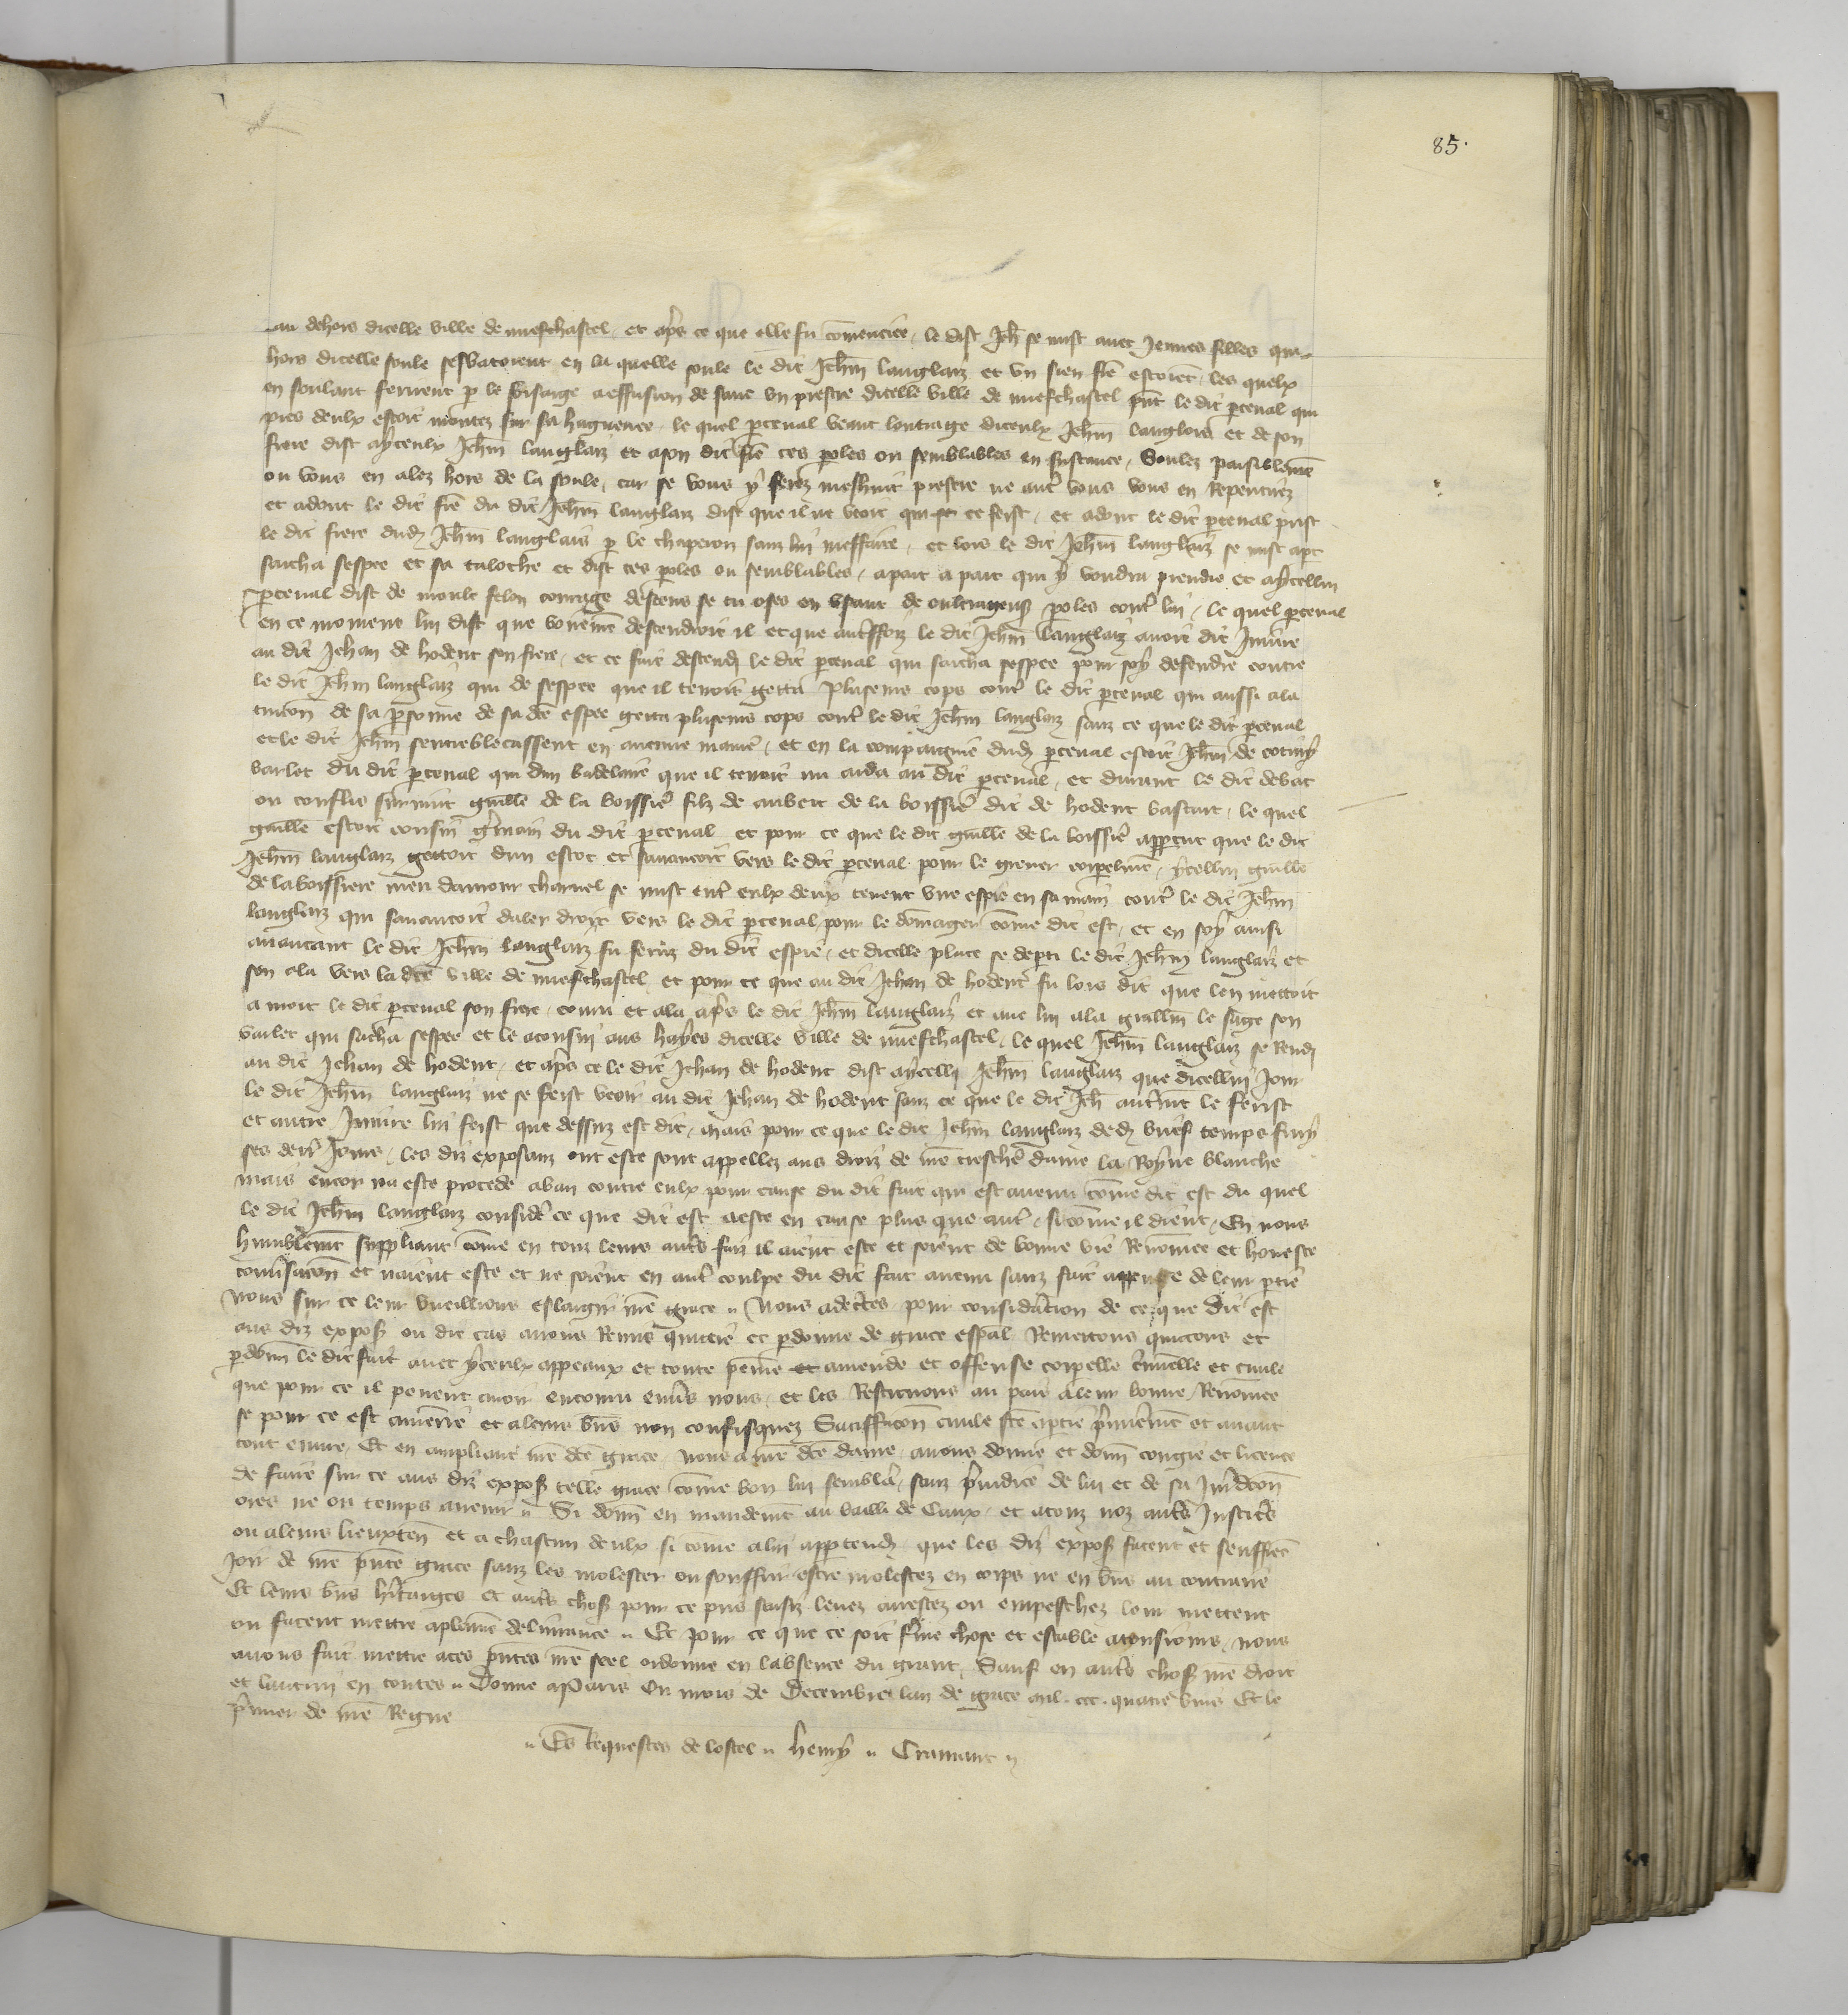 85.
au dehors dicelle ville de nuefchastel et apres ce que elle fu comencee le dist Jeh se mist avec Jeunes filles qui
hors dicelle soule sesbatoient en la quelle soule le dit Jehm langlaiz et un sien frē estoiēt les quelx
en soulant ferirent p le visaige a effusion de sanc un prestre dicelle ville de nuefchastel pnt le dit pceval qui
pres deulx estoit montez sur sa haguenee le quel pceval veant loutrage diceulx Jehm langlois et de son
frere dist ayceulx Jehm langlaiz et a son dit frē ces poles ou semblables en sustance Soulez paisiblemē
ou vous en alez hors de la soule car se vous y ferez meshuit prestre ne autr vous vous en Repentirez
et adont le dit frē du dit Jehm langlaiz dist que il ne veoit qui ce feist et adont le dit pceval prist
le dit frere dud Jehm langlais p le chaperon sanz lui meffaire et lors le dit Jehm langlaiz se mist apt
sacha sespee et sa taloche et dist ces poles ou semblables apart a part qui y voudra prendre et aycellui
pceval dist de moult felon courage descens se tu oses en usant de oultrageux poles contr lui le quel pceval
en ce moment lui dist que vonemē descendroit il et que autreffoiz le dit Jehm langlaiz avoit dit Iniure
au dit Jehan de hodent son frere et ce fait descend le dit pceval qui sacha sespee pour soy defendre contre
le dit Jehm langlaiz qui de sespee que il tenoit getta pluseurs cops contr le dit pceval qui aussi a la
tuicōn de sa psonne de sa dte espee getta pluseurs cops contr le dit Jehm langlaiz sanz ce que le dit pceval
et le dit Jehm sentreblecassent en aucune maniē et en la compaignie dud pceval estoit Jehm de cotiny
varlet du dit pceval qui dun badelaire que il tenoit nu aida au dit pceval et durant le dit debat
ou conflis survint guille de la boissiē filz de aubert de la boissiē dit de hodent bastart le quel
guille estoit cousin gmain du dit pceval et pour ce que le dit guille de la boissiē appceut que le dit
Jehm langlaiz gettoit dun estoc et savancoit vers le dit pceval pour le grever corpelmēt ycellui guille
de la boissiere meu damour charnel se mist entr eulx deux tenent une espie en sa main contr le dit Jehm
langlaiz qui savancoit daler droit vers le dit pceval pour le domagier come dit est et en soy ainsi
avancant le dit Jehm langlaiz fu feruz du dit espie et dicelle place se depti le dit Jehm langlaiz et
sen ala vers la dte ville de nuefchastel et pour ce que au dit Jehan de hodent fu lors dit que len mettoit
a mort le dit pceval son frere couru et ala apres le dit Jehm langlaiz et avec lui ala guillm le sage son
varlet qui sacha sespee et le aconsui aus hayes dicelle ville de nuefchastel le quel Jehm langlaiz se Rend
au dit Jehan de hodent et apres ce le dit Jehan de hodent dist aycelli Jehm langlaiz que dicellui Jour
le dit Jehm langlaiz ne se feist veoir au dit Jehan de hodent sanz ce que le dit Jeh autmēt le ferist
et autre Iniure lui feist que dessus est dit mais pour ce que le dit Jehm langlaiz dedz brief temps fny
ses derrs Jours les diz exposanz ont este sont appellez aus droiz de nre treschē dame la Royne blanche
mais encor na este procede a ban contre eulx pour cause du dit fait qui est avenu come dit est du quel
le dit Jehm langlaiz considē ce que dit est a este en cause plus que autr sicome il dient En nous
humblemēt suppliant come en touz leurs autrs faiz il aient este et soient de bonne vie Renōmee et honeste
convsacōn et naient este et ne soient en autr coulpe du dit fait avenu sanz fait appense de leur ptie
nous sur ce leur vueillions eslargir nre grace Nous adectes pour considacion de ce que dit est
aus diz expos ou dit cas avons Remis quictie et pdonne de grace espal Remettons quictons et
pdonn le dit fait avec yceulx appeaux et toute peine et amende et offense corpelle criminelle et civile
que pour ce il pevent avoir encouru envs nous et les Restituons au pais a leur bonne Renōmee
se pour ce est amenrie et a leurs bns non confisquez Satiffacōn civile fte a ptie pmieremēt et avant
tout euvre Et en ampliant nre dte grace nous a nre dte dame avons donne et donn congie et licence
de faire sur ce aus diz expos telle grace come bon lui semblā sanz preiudice de lui et de sa Jurdicōn
ores ne ou temps avenir Si donn en mandemēt au bailli de Caux et a touz noz autrs Justicrs
ou a leurs lieuxten et a chascun deulx si come a lui appartend que les diz expos facent et seuffrēt
Joir de nre pnte grace sanz les molester ou souffrir estre molestez en corps ne en bns au contraire
Et leurs bns hritaiges et autrs chos pour ce pris saisiz levez arrestez ou empeschez leur mettent
ou facent mettre a plaine delivrance Et pour ce que ce soit ferme chose et estable a tousiours nous
avons fait mettre a ces pntes nre seel ordonne en labsence du grant Sauf en autrs chos nre droit
et lautrui en toutes Donne a Paris Ou mois de Decembre lan de grace mil ccc quatre vins Et le
pmier de nre Regne
Es Requestes de lostel henry Cramant